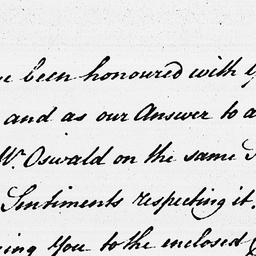 been honoured with
and as our Answer to a
Mr. Oswald on the same
Sentiments respecting it.
ing You to the enclosed